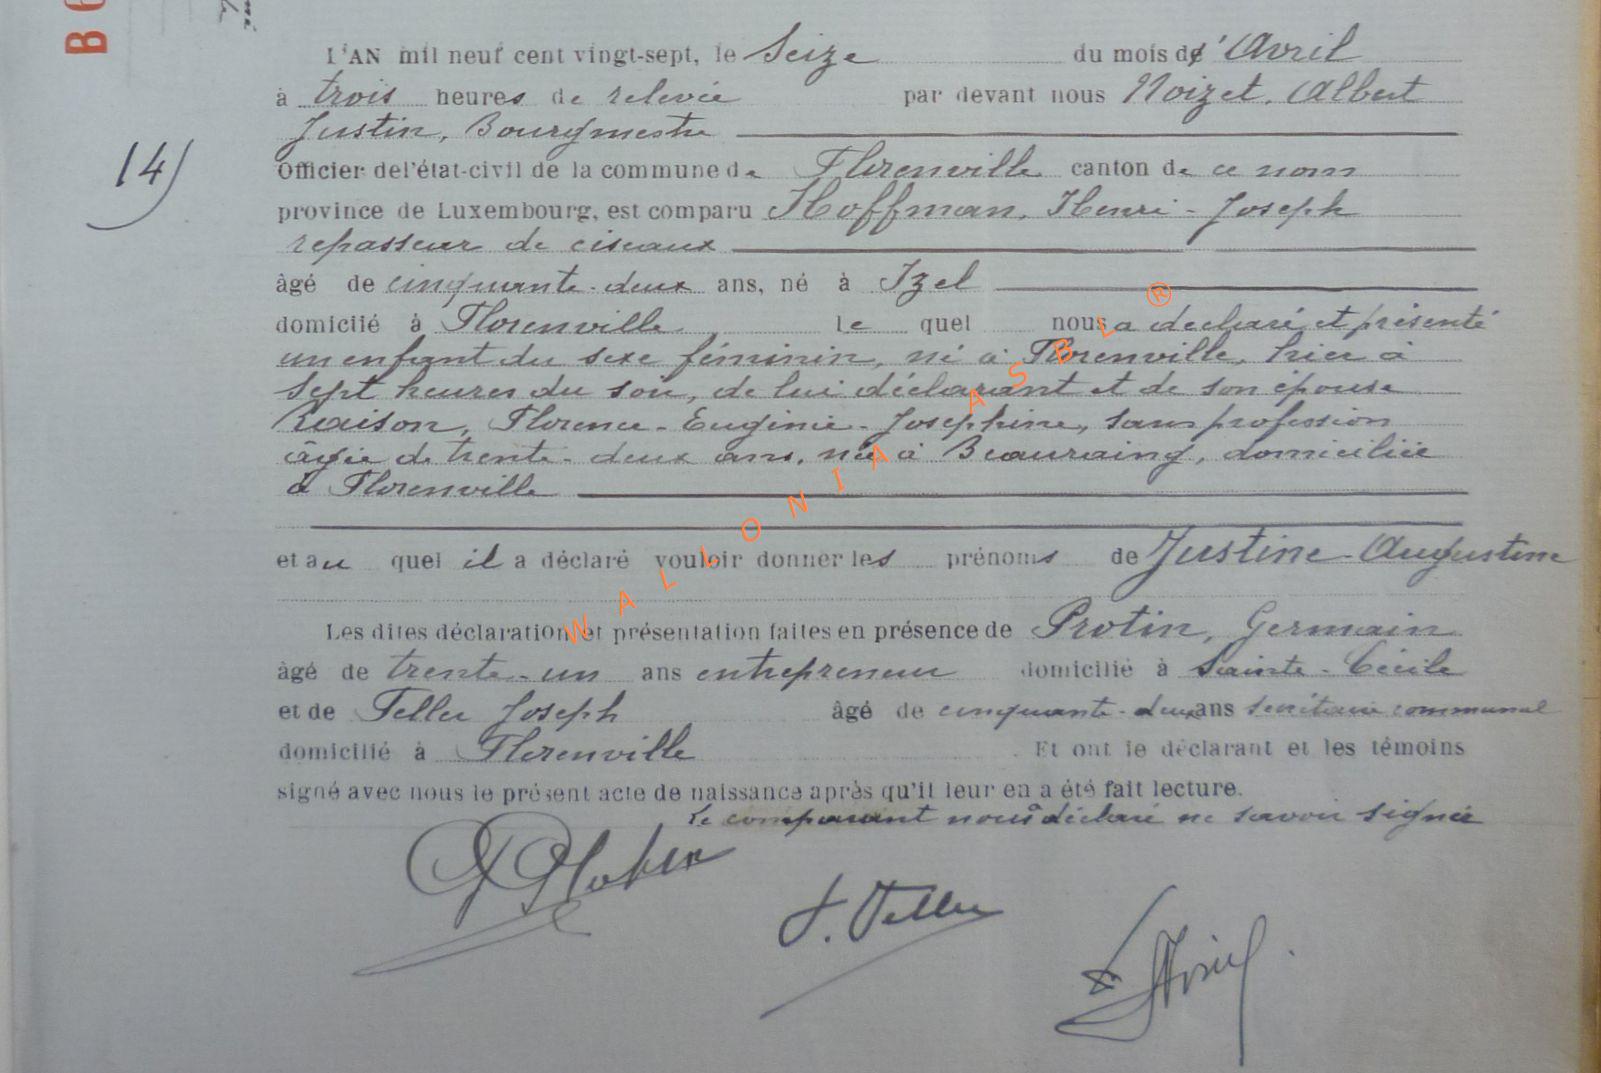 B
L'AN mil neuf cent vingt-sept, le Seize du mois d'Avril
à trois heures de relevée par devant nous Noizet, Albert
Justin, Bourgmestre
Officier de l'état-civil de la commune de Florenville canton de ce nom
province de Luxembourg, est comparu Hoffman, Henri-Joseph
repasseur de ciseaux
âgé de cinquante-deux ans, né à Izel
domicilié à Florenville, le quel nous a déclaré et présenté
un enfant du sexe féminin, né à Florenville, hier à
sept heures du soir, de lui déclarant et de son épouse
Florence-Eugénie-Joséphine, sans profession
âgée de trente-deux ans, née à Beauraing, domiciliée
à Florenville
et au quel il a déclaré vouloir donner les prénoms de Justine-Augustine
Les dites déclaration et présentation faites en présence de Protin, Germain
âgé de trente-un ans entrepreneur domicilié à Sainte-Cécile
et de Teller Joseph âgé de cinquante-deux ans secrétaire communal
domicilié à Florenville. Et ont le déclarant et les témoins
signé avec nous le présent acte de naissance après qu'il leur en a été fait lecture.
Le comparant nous a déclaré ne savoir signer
J. Teller
14)
WALLONIA ASBL ®